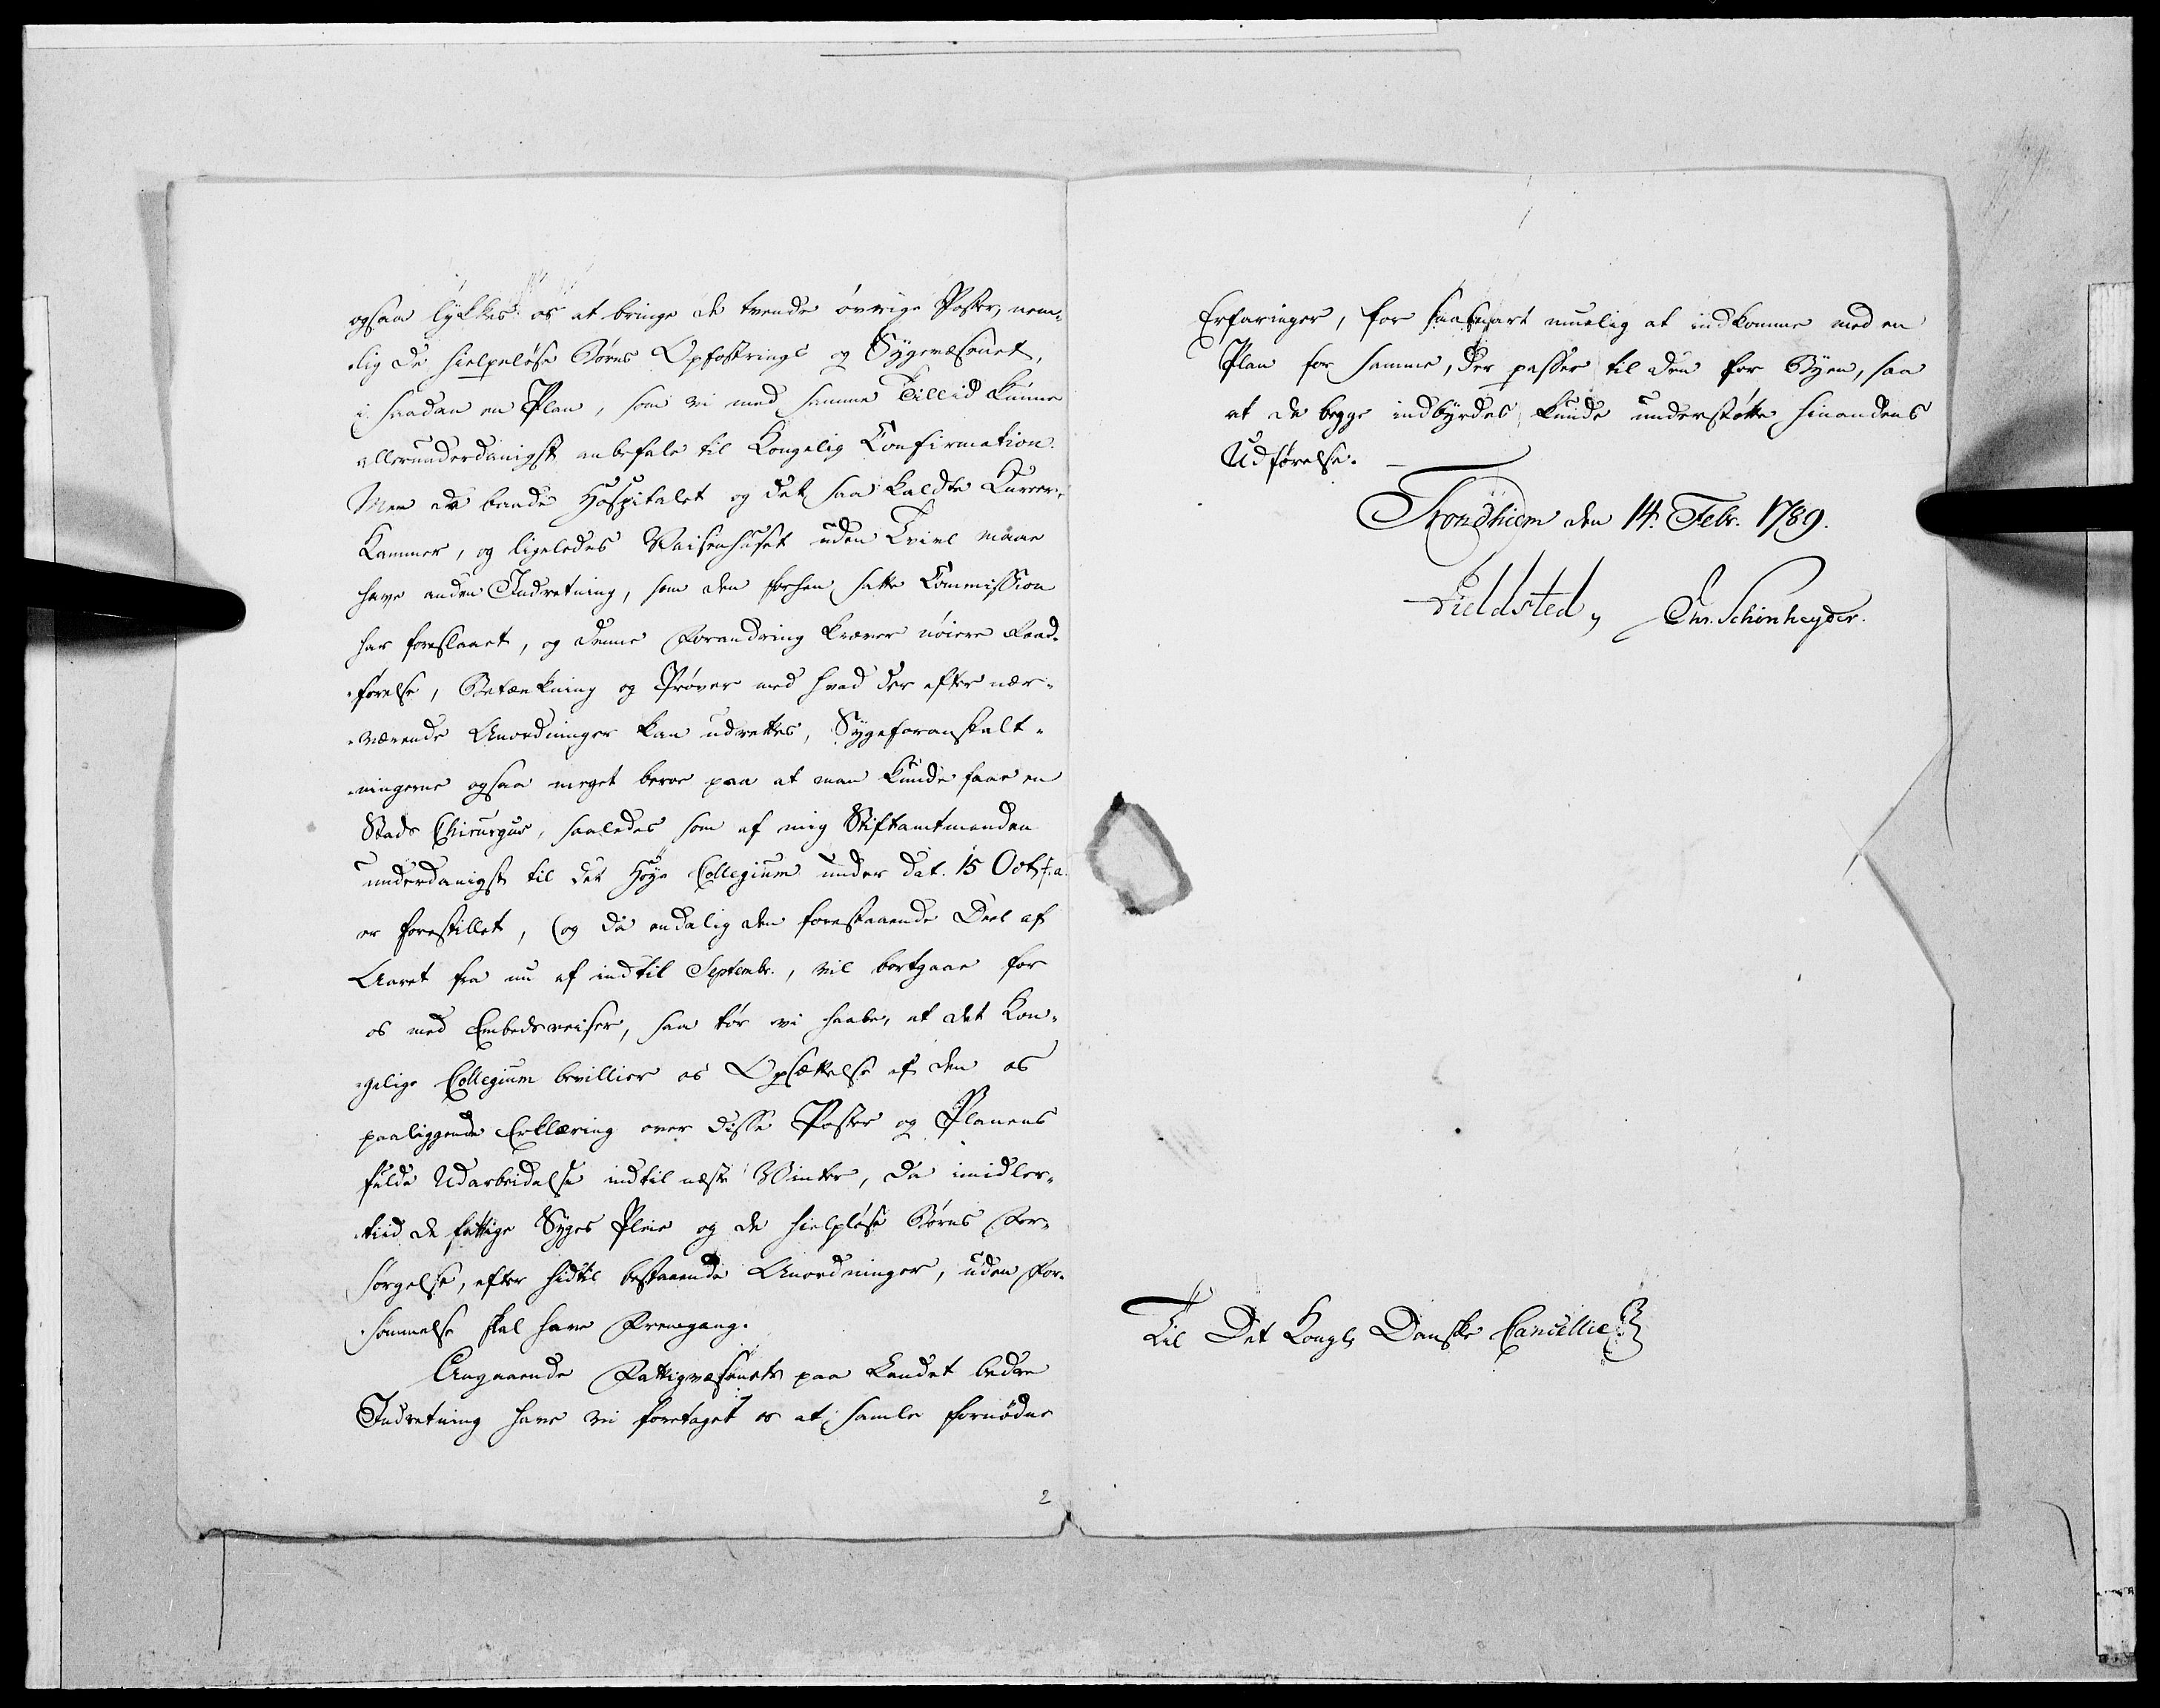 ogsaa lykkes os at bringe de tvende øvrige Poster, nem-
-lig de hielpeløse Børns Opfostrings og Sygevæsenet,
i saadan en Plan, som vi med samme Tillid kunne
allerunderdanigst anbefale til Kongelig Confirmation.
Men da baade Hospitalet og det saa kaldte Kurer-
Kammer, og ligeledes Waisenhuset uden Tvivl maae
have anden Indretning, som den forhen satte Commission
har foreslaaet, og denne Forandring kræver nøiere Raad-
-førelse, Betænkning og Prøver med hvad der efter nær-
-værende Anordninger kan udrettes, Sygeforanstalt-
-ningerne ogsaa meget beroe paa at man kunde faae en
Stads Chirurgus, saaledes som af mig Stiftamtmanden
underdanigst til det Høye Collegium under dat. 15 Octb. f. a.
er forestillet, (og da endelig den forestaaende Deel af
Aaret fra nu af indtil Septembr., vil bortgaae for
os med Embedsreiser, saa tør vi haabe, at det Kon-
-gelige Collegium bevillier os Opsættelse af den os
paaliggende Erklæring over disse Poster og Planens
fulde Udarbeidelse indtil næste Winter, da imidler-
-tiid de fattige Syges Pleie og de hielpløse Børns For-
sørgelse, efter hidtil bestaaende Anordninger, uden For-
-sømmelse skal have Fremgang.
Angaaende Fattigvæsenets paa Landet bedre
Indretning have vi foretaget os at samle fornødne
2
Erfaringer, for saasnart muelig at indkomme med en
Plan for samme, der passer til den for Byen, saa
at de begge indbyrdes kunde understøtte hinandens
Udførelse.
Trondhiem den 14. Febr. 1789.
Fieldsted, Chr. Schönheyder.
Til Det Kongl. Danske Cancellie